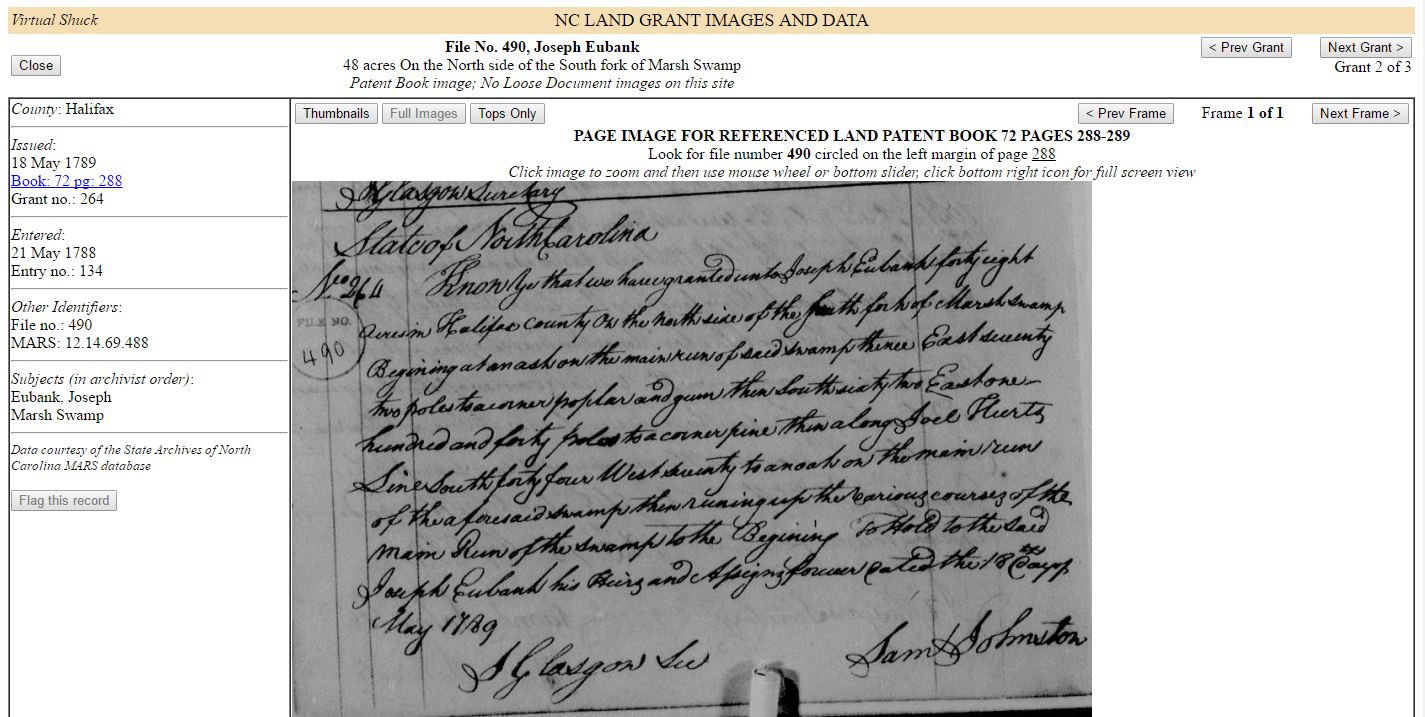 Virtual Shuck
NC LAND GRANT IMAGES AND DATA
Close
File No. 490, Joseph Eubank
48 acres On the North side of the South fork of Marsh Swamp
Patent Book image; No Loose Document images on this site
< Prev Grant
Next Grant >
Grant 2 of 3
County: Halifax
Issued:
18 May 1789
Book: 72 pg: 288
Grant no.: 264
Entered:
21 May 1788
Entry no.: 134
Other Identifiers:
File no.: 490
MARS: 12.14.69.488
Subjects (in archivist order):
Eubank, Joseph
Marsh Swamp
Data courtesy of the State Archives of North
Carolina MARS database
Flag this record
Thumbnails
Full Images
Tops Only
< Prev Frame
Frame 1 of 1
Next Frame >
PAGE IMAGE FOR REFERENCED LAND PATENT BOOK 72 PAGES 288-289
Look for file number 490 circled on the left margin of page 288
Click image to zoom and then use mouse wheel or bottom slider, click bottom right icon for full screen view
J Glasgow Secretary
State of North Carolina
No 264 Know Ye that we have granted unto Joseph Eubank forty eight
FILE NO.
490
Acres in Halifax county On the north side of the South fork of Marsh swamp
Begining at an ash on the main run of said swamp thence East seventy
two poles to a corner poplar and gum then South sixty two East one
hundred and forty poles to a corner pine then along Joel Hurts
Line South forty four West seventy to an oak on the main run
of the aforesaid swamp then runing up the various courses of the
main Run of the swamp to the Begining To Hold to the said
Joseph Eubank his Heirs and Assigns forever Dated the 18th day of
May 1789
J Glasgow Sec
Sam Johnston